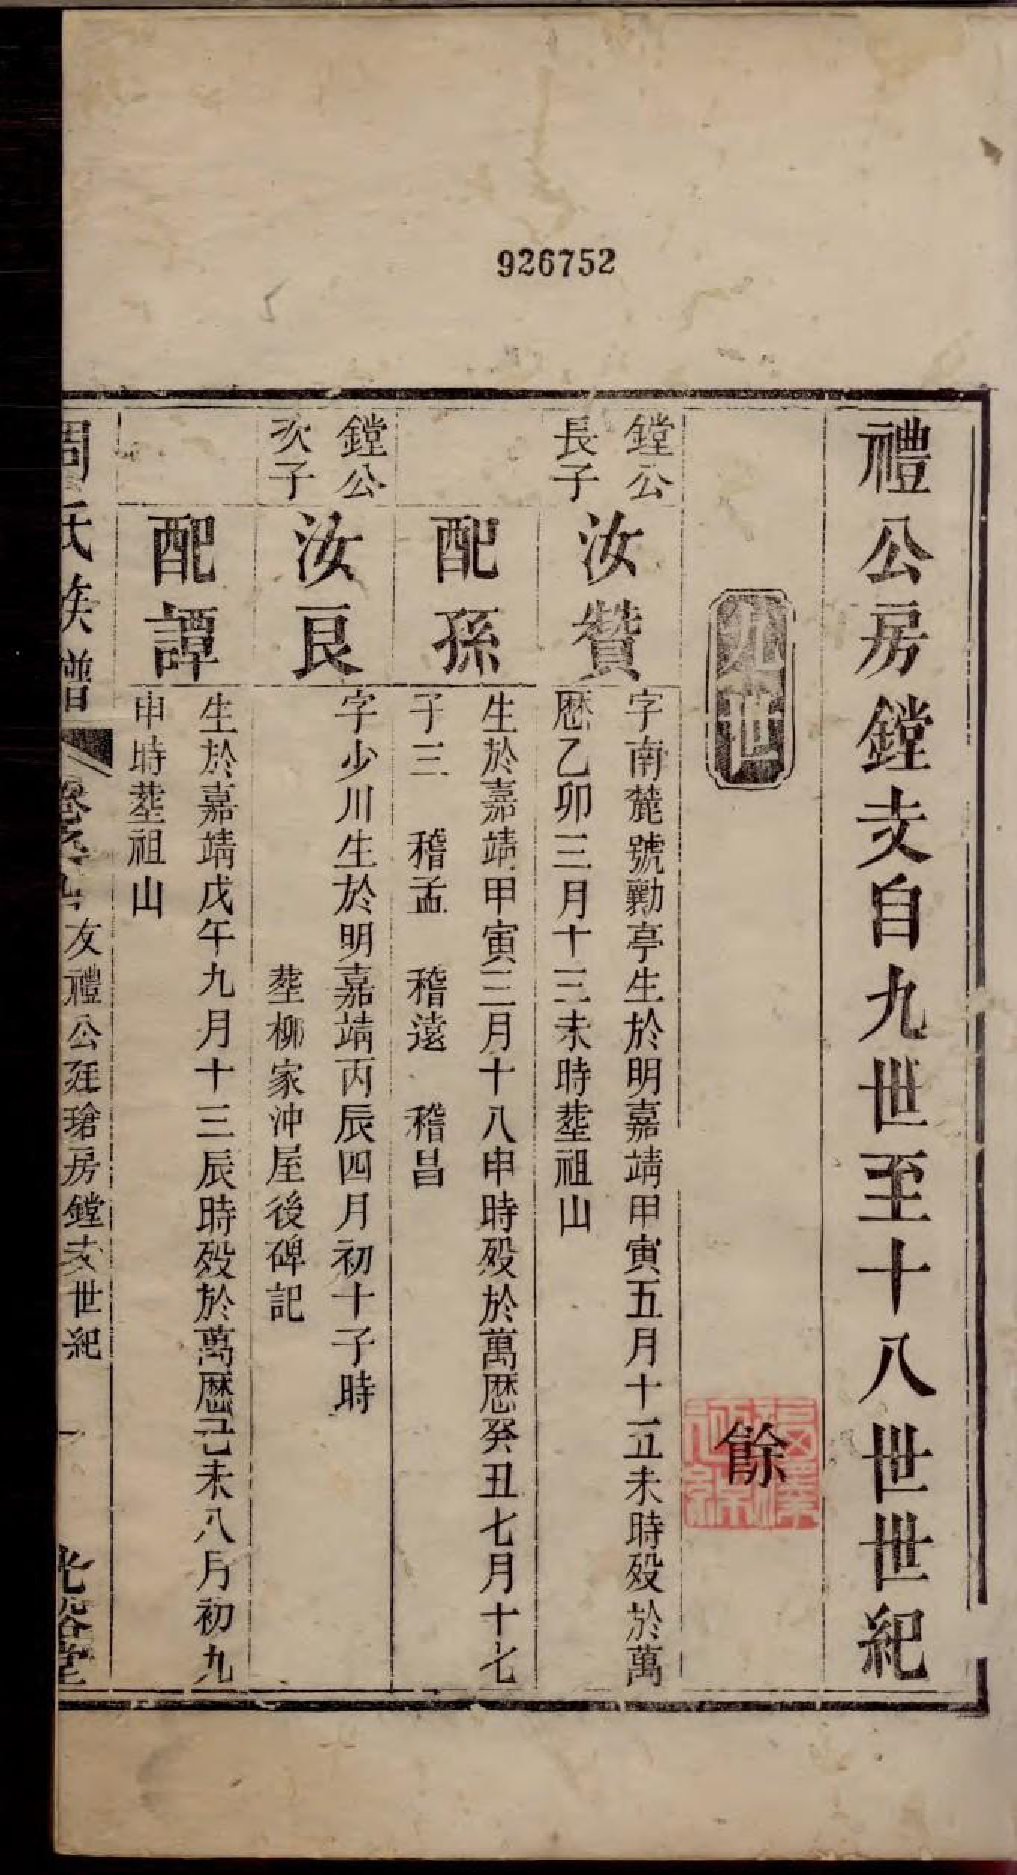 926752
禮公房鏜支自九世至十八世世紀
九世
餘
鏜公
長子
汝贊
字南麓號勷亭生於明嘉靖甲寅五月十五未時殁於萬
厯乙卯三月十三未時塟祖山
配孫
生於嘉靖甲寅三月十八申時殁於萬厯癸丑七月十七
子三 稽孟 稽遠 稽昌
鏜公
次子
汝艮
字少川生於明嘉靖丙辰四月初十子時
塟柳家沖屋後碑記
配譚
生於嘉靖戊午九月十三辰時殁於萬厯己未八月初九
申時塟祖山
周氏族譜
友禮公廷瑲房鏜支世紀
一
光裕堂